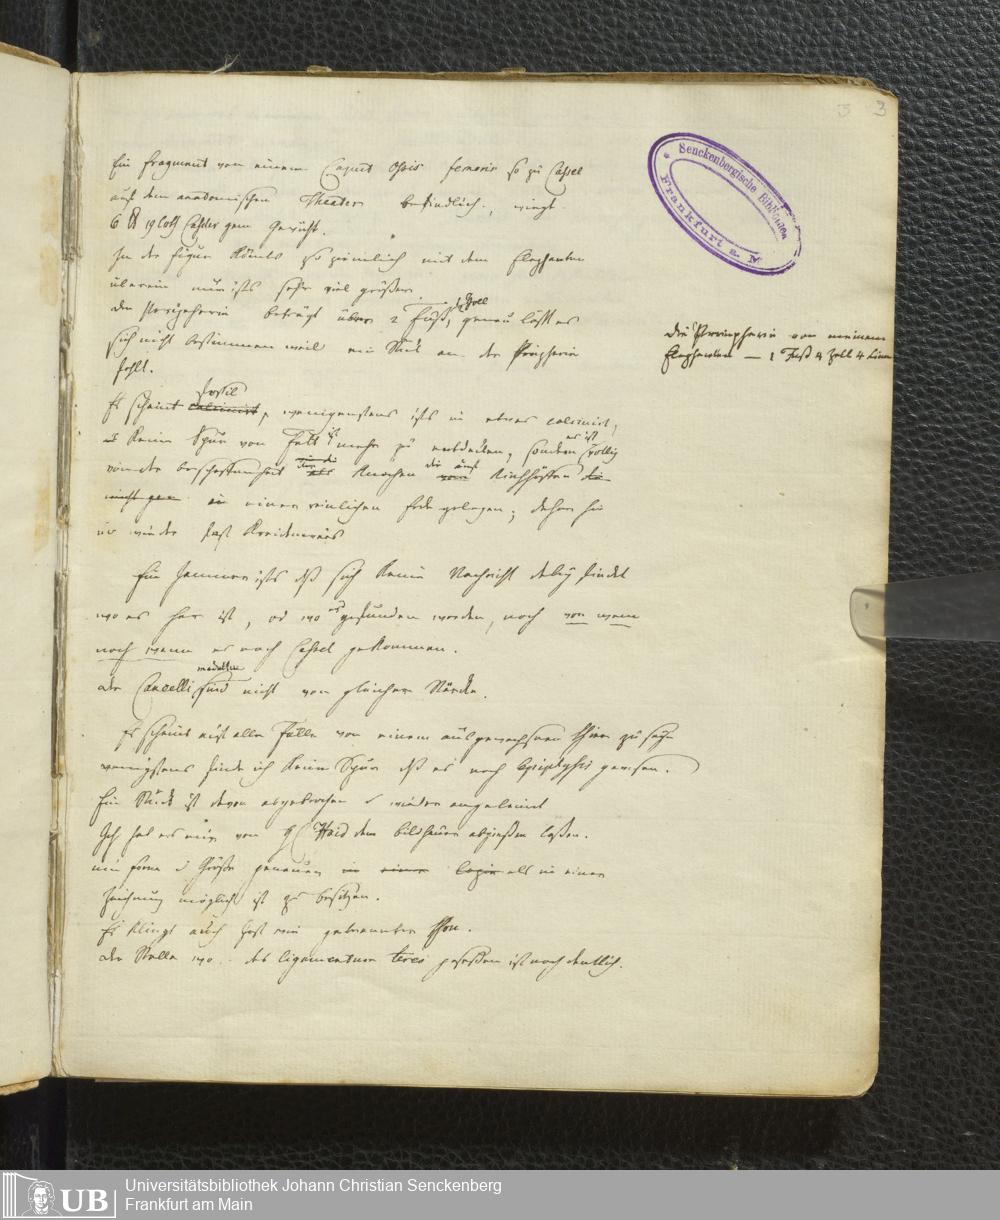 3 3
Senckenbergische Bibliothek
Frankfurt a. M
Ein Fragment von einem Caput Ossis femoris so zu Cassel
auf dem anatomischen Theater befindlich, wiegt
6 ℔ 19 Loth Cassler gem Gewicht.
In der Figur kömts so ziemlich mit dem Elephanten
überein nur ists sehr viel größer
die Peripherie beträgt über 2 Fuß, Zoll genau läßt es
sich nicht bestimmen weil ein Stück an der Peripherie
fehlt.
Die Peripherie von meinem
Elephanten — 1 Fuß 4 Zoll 4 Linn
Es scheint calcinirt fossil, wenigstens ists in etwas calcinirt,
keine Spur von Fett ist mehr zu entdecken, sondern es ist völlig
von der Beschaffenheit der Knochen die auf Kirchhöfen
in einer Erde gelegen; daher sie
fast Kreidenweis
Ein Jammer ists dß sich keine Nachricht dabey findet
wo es her ist, od wo es gefunden worden, noch von wem
noch wenn es nach Cassel gekommen.
die Cancelli medullae sind nicht von gleicher Stärke.
Es scheint auf alle Fälle von einem ausgewachsenen Thier zu seyn
wenigstens finde ich keine Spur dß es noch Epiphysis gewesen.
Ein Stück ist davon abgebrochen u wieder angeleimt
Ich hab es mir von H Heid dem Bildhauer abgießen laßen.
um Form u Größe genauer in einer als in einer
Zeichnung möglich ist zu besitzen.
Es klingt auch fast wie gebrannter Thon.
die Stelle wo das ligamentum teres gesessen ist noch deutlich.
UB
Universitätsbibliothek Johann Christian Senckenberg
Frankfurt am Main